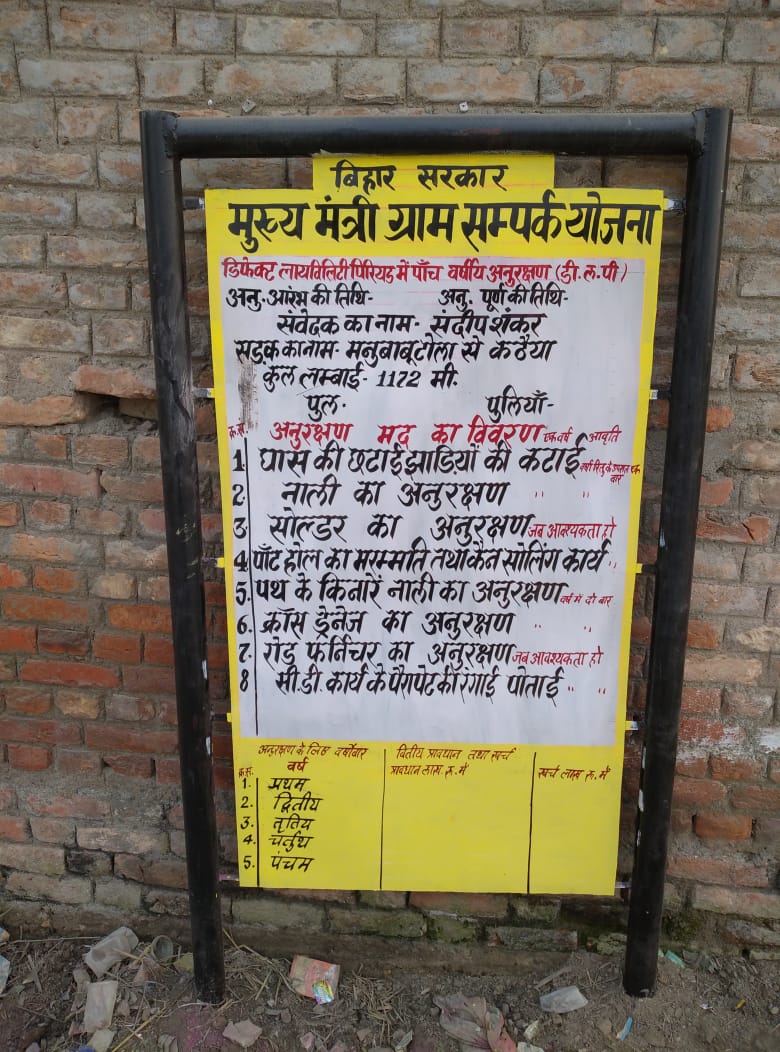 बिहार सरकार
मुख्य मंत्री ग्राम सम्पर्क योजना
डिफेक्ट लायविलिटी पिरियड में पाँच वर्षीय अनुरक्षण (डी.ल.पी)
अनु. आरंभ की तिथि- अनु. पूर्ण की तिथि-
संवेदक का नाम- संदीप शंकर
सड़क का नाम- मनुबाबू टोला से कठैया
कुल लम्बाई- 1172 मी.
पुल- पुलियाँ-
क्र.सं. अनुरक्षण मद का विवरण एक वर्ष आवृति
1 घास की छटाई झाडियों की कटाई वर्षा रितु के उपरान्त एक बार
2 नाली का अनुरक्षण " "
3 सोल्डर का अनुरक्षण जब आवश्यकता हो
4 पॉट होल का मरम्मति तथा केन सोलिंग कार्य "
5. पथ के किनारें नाली का अनुरक्षण वर्ष में दो बार
6. क्रॉस ड्रेनेज का अनुरक्षण " "
7. रोड फर्निचर का अनुरक्षण जब आवश्यकता हो
8 सी.डी. कार्य के पैरापेट की रंगाई पोताई " "
अनुरक्षण के लिए वर्षोवार वितीय प्रावधान तथा खर्च
क्र.स. वर्ष प्रावधान लाख. रू. में खर्च लाख रू. में
1. प्रथम
2. द्वितीय
3. तृतिय
4. चर्तुथ
5. पंचम